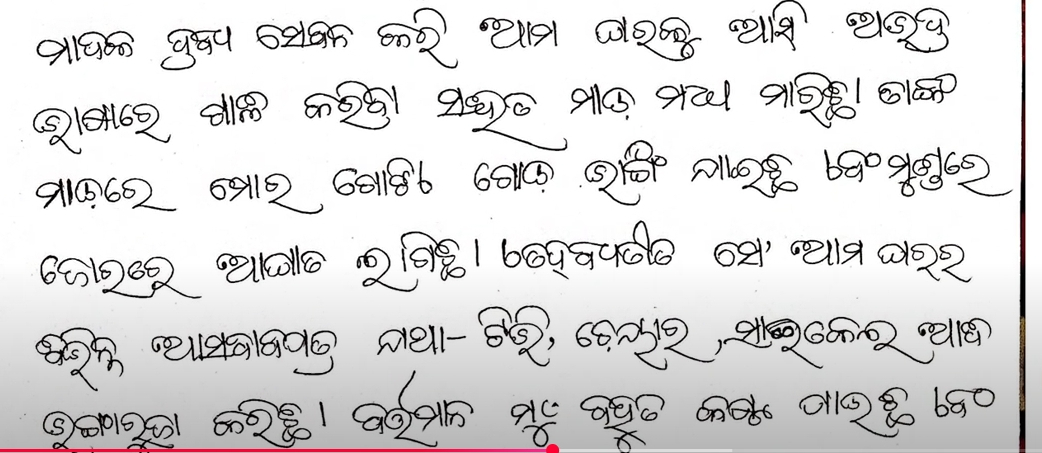 ମାଦକ ଦ୍ରବ୍ୟ ସେବନ କରି ଆମ ଘରକୁ ଆସି ଅଭଦ୍ର
ଭାଷାରେ ଗାଳି କରିବା ସହିତ ମାଡ଼ ମଧ୍ୟ ମାରିଛି। ତାଙ୍କ
ମାଡ଼ରେ ମୋର ଗୋଟିଏ ଗୋଡ଼ ଭାଙ୍ଗି ଯାଇଛି ଏବଂ ମୁଣ୍ଡରେ
ଜୋରରେ ଆଘାତ ଲାଗିଛି। ଏତଦ୍‌ବ୍ୟତୀତ ସେ' ଆମ ଘରର
ବିଭିନ୍ନ ଆସବାବପତ୍ର ଯଥା- ଟିଭି, ଚେୟାର, ସାଇକେଲ ଆଦି
ଭଙ୍ଗାରୁଜା କରିଛି। ବର୍ତ୍ତମାନ ମୁଁ ବହୁତ କଷ୍ଟ ପାଉଛି ଏବଂ